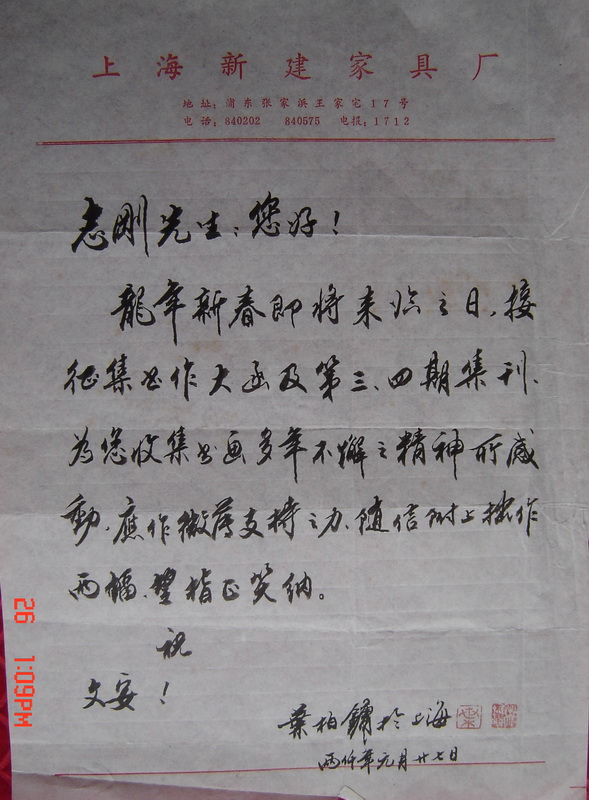 上海新建家具厂
地址：浦东张家浜王家宅17号
电话：840202 840575 电报：1712
志刚先生：您好！
龍年新春即将来临之日，接
征集书作大函及第三、四期集刊、
为您收集书画多年不懈之精神所感
動，應作微薄支持之力，随信附上拙作
两幅，望指正笑纳。
祝
文安！
葉柏鏞於上海
两仟年元月廿七日
26 1:09PM